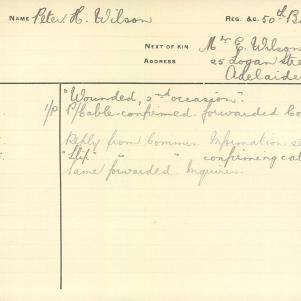 NAME Peter H. Wilson REG. &C. 50th B
NEXT OF KIN Mr E. Wilson
ADDRESS 25 Logan Stre
Adelaide
"Wounded, 2nd occasion".
1/P P/Cable confirmed forwarded Co
Reply from Commin. Information se
"Slip" " " confirming cab
same forwarded Inquirer.